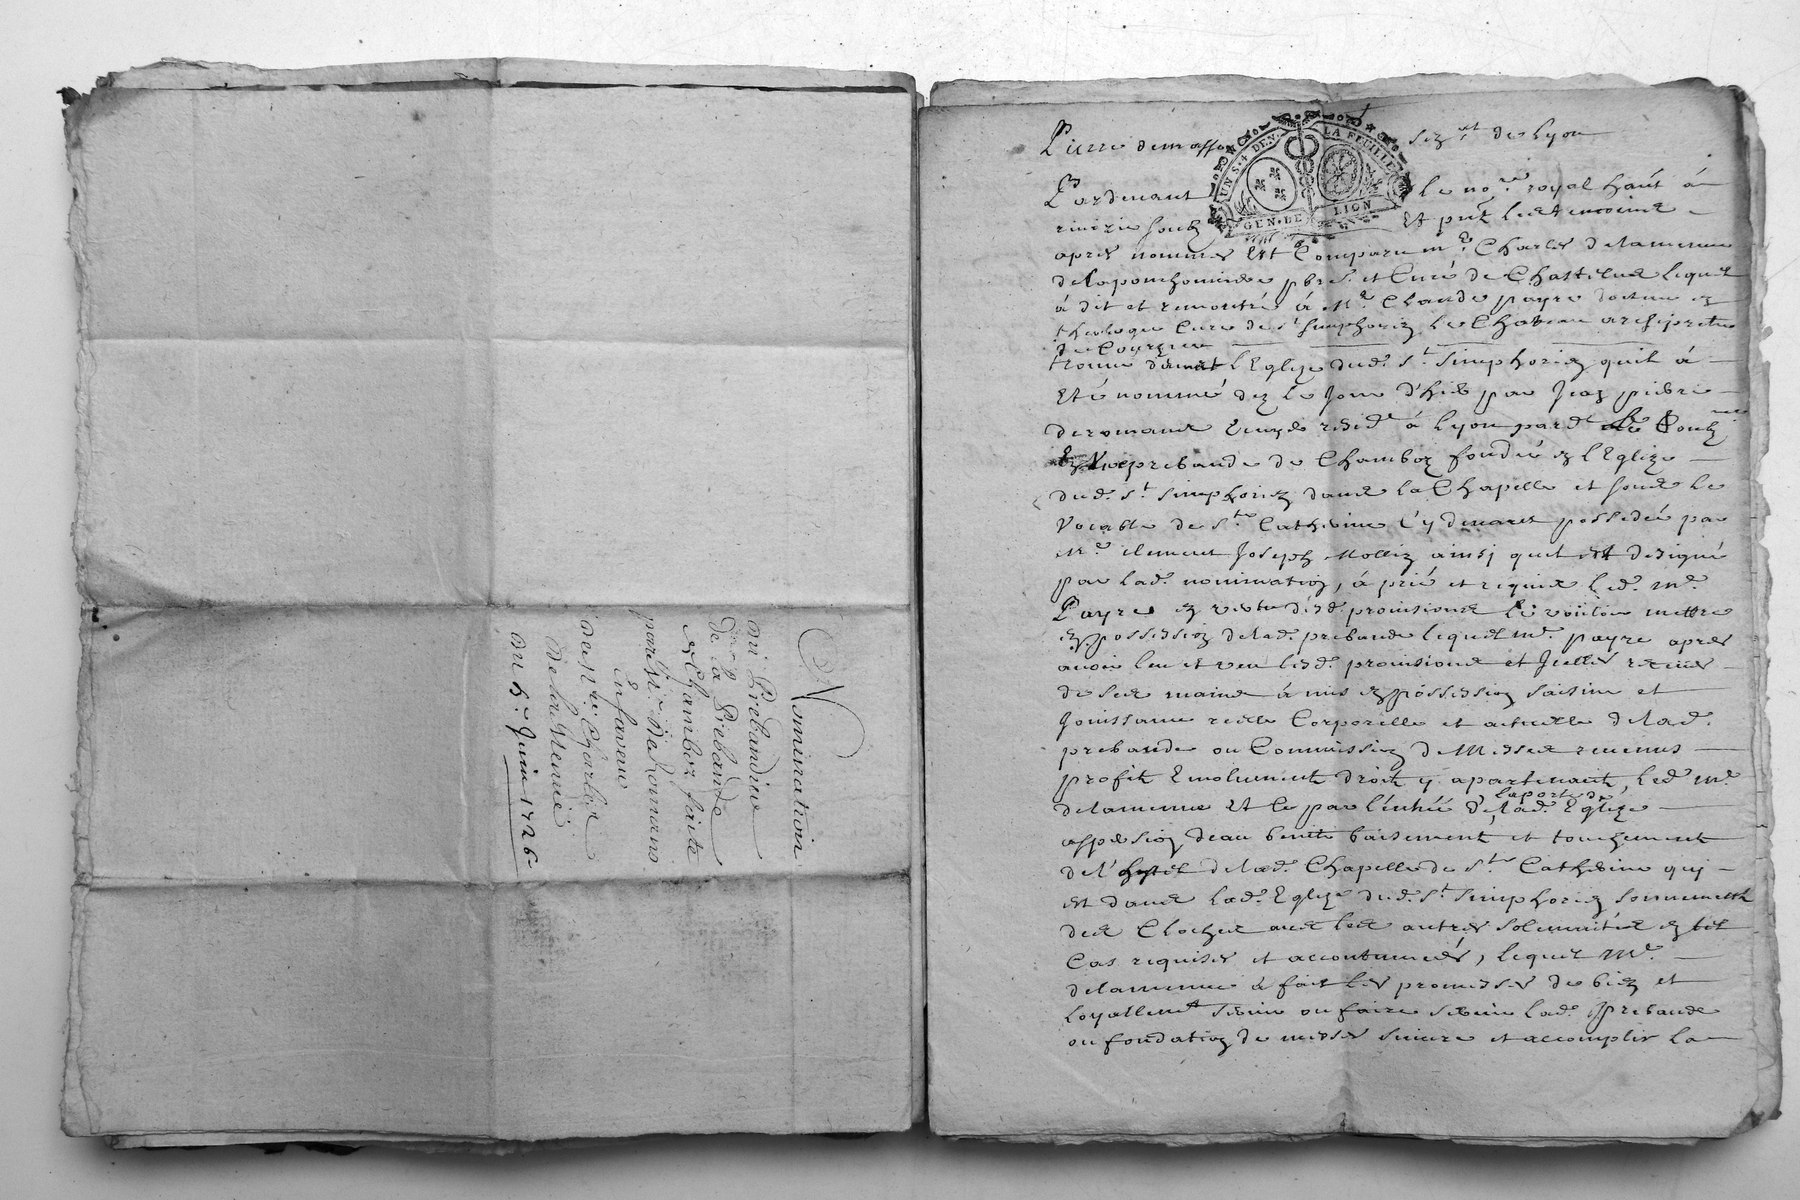 Nomination
du Prebandier
de la Prebande
de Chamboz faite
par Sr. De Romans
En faveur
de Mre. Charles
De la Menüe
du 6e Juin 1726
Pierre demasso
sez et de Lyon
UN S. 4 DEN. LA FEUILLE
GEN. DE LION
Pardevant le nore. royal
Et
apres nommes Est Comparu mre. Charles delamenue
pbre. et Curé de Chastelus lequel
á dit et remontré á Mre Claude payre docteur en
theologie Curé de st. simphorien Le Chateau archipretre
de Courzieu
l'Eglize dud. st. simphorien quil á
Eté nommé dez le Jour d'hier par Jean pierre
deromans Ecuyer residt. á Lyon pard.
prebande de Chamboz fondée en l'Eglize
dud. st. simphorien dans la Chapelle et sous le
Vocable de ste. Catherine Cy devant possedée par
Mre. clement Joseph Mollin ainsy quil est designé
par lad. nomination, á prié et requis led. mre.
Payre en vertu desd. provisions Le voiloir mettre
en possession delad. prebande lequel mre. payre apres
avoir leu et veu lesd. provisions et Jcelles
de ses mains á mis en possession saisine et
Jouissance reelle Corporelle et actuelle delad.
prebande ou Commission de Messes revenus
profit Emolument droit y apartenant, led. mre
delamenue Et ce par l'entrée de
la porte de
lad. Eglize
aspersion deau benite baisement et touchement
de l' delad. Chapelle de ste. Catherine qui
est dans lad. Eglize dud. st. simphorien sonnement
des Cloches avec les autres solemnités en tel
Cas requises et accoutumées, lequel Mre.
delamenue á fait les promesses de bien et
loyallemt servir ou faire servir lad. prebande
ou fondation de messes suivre et accomplir la